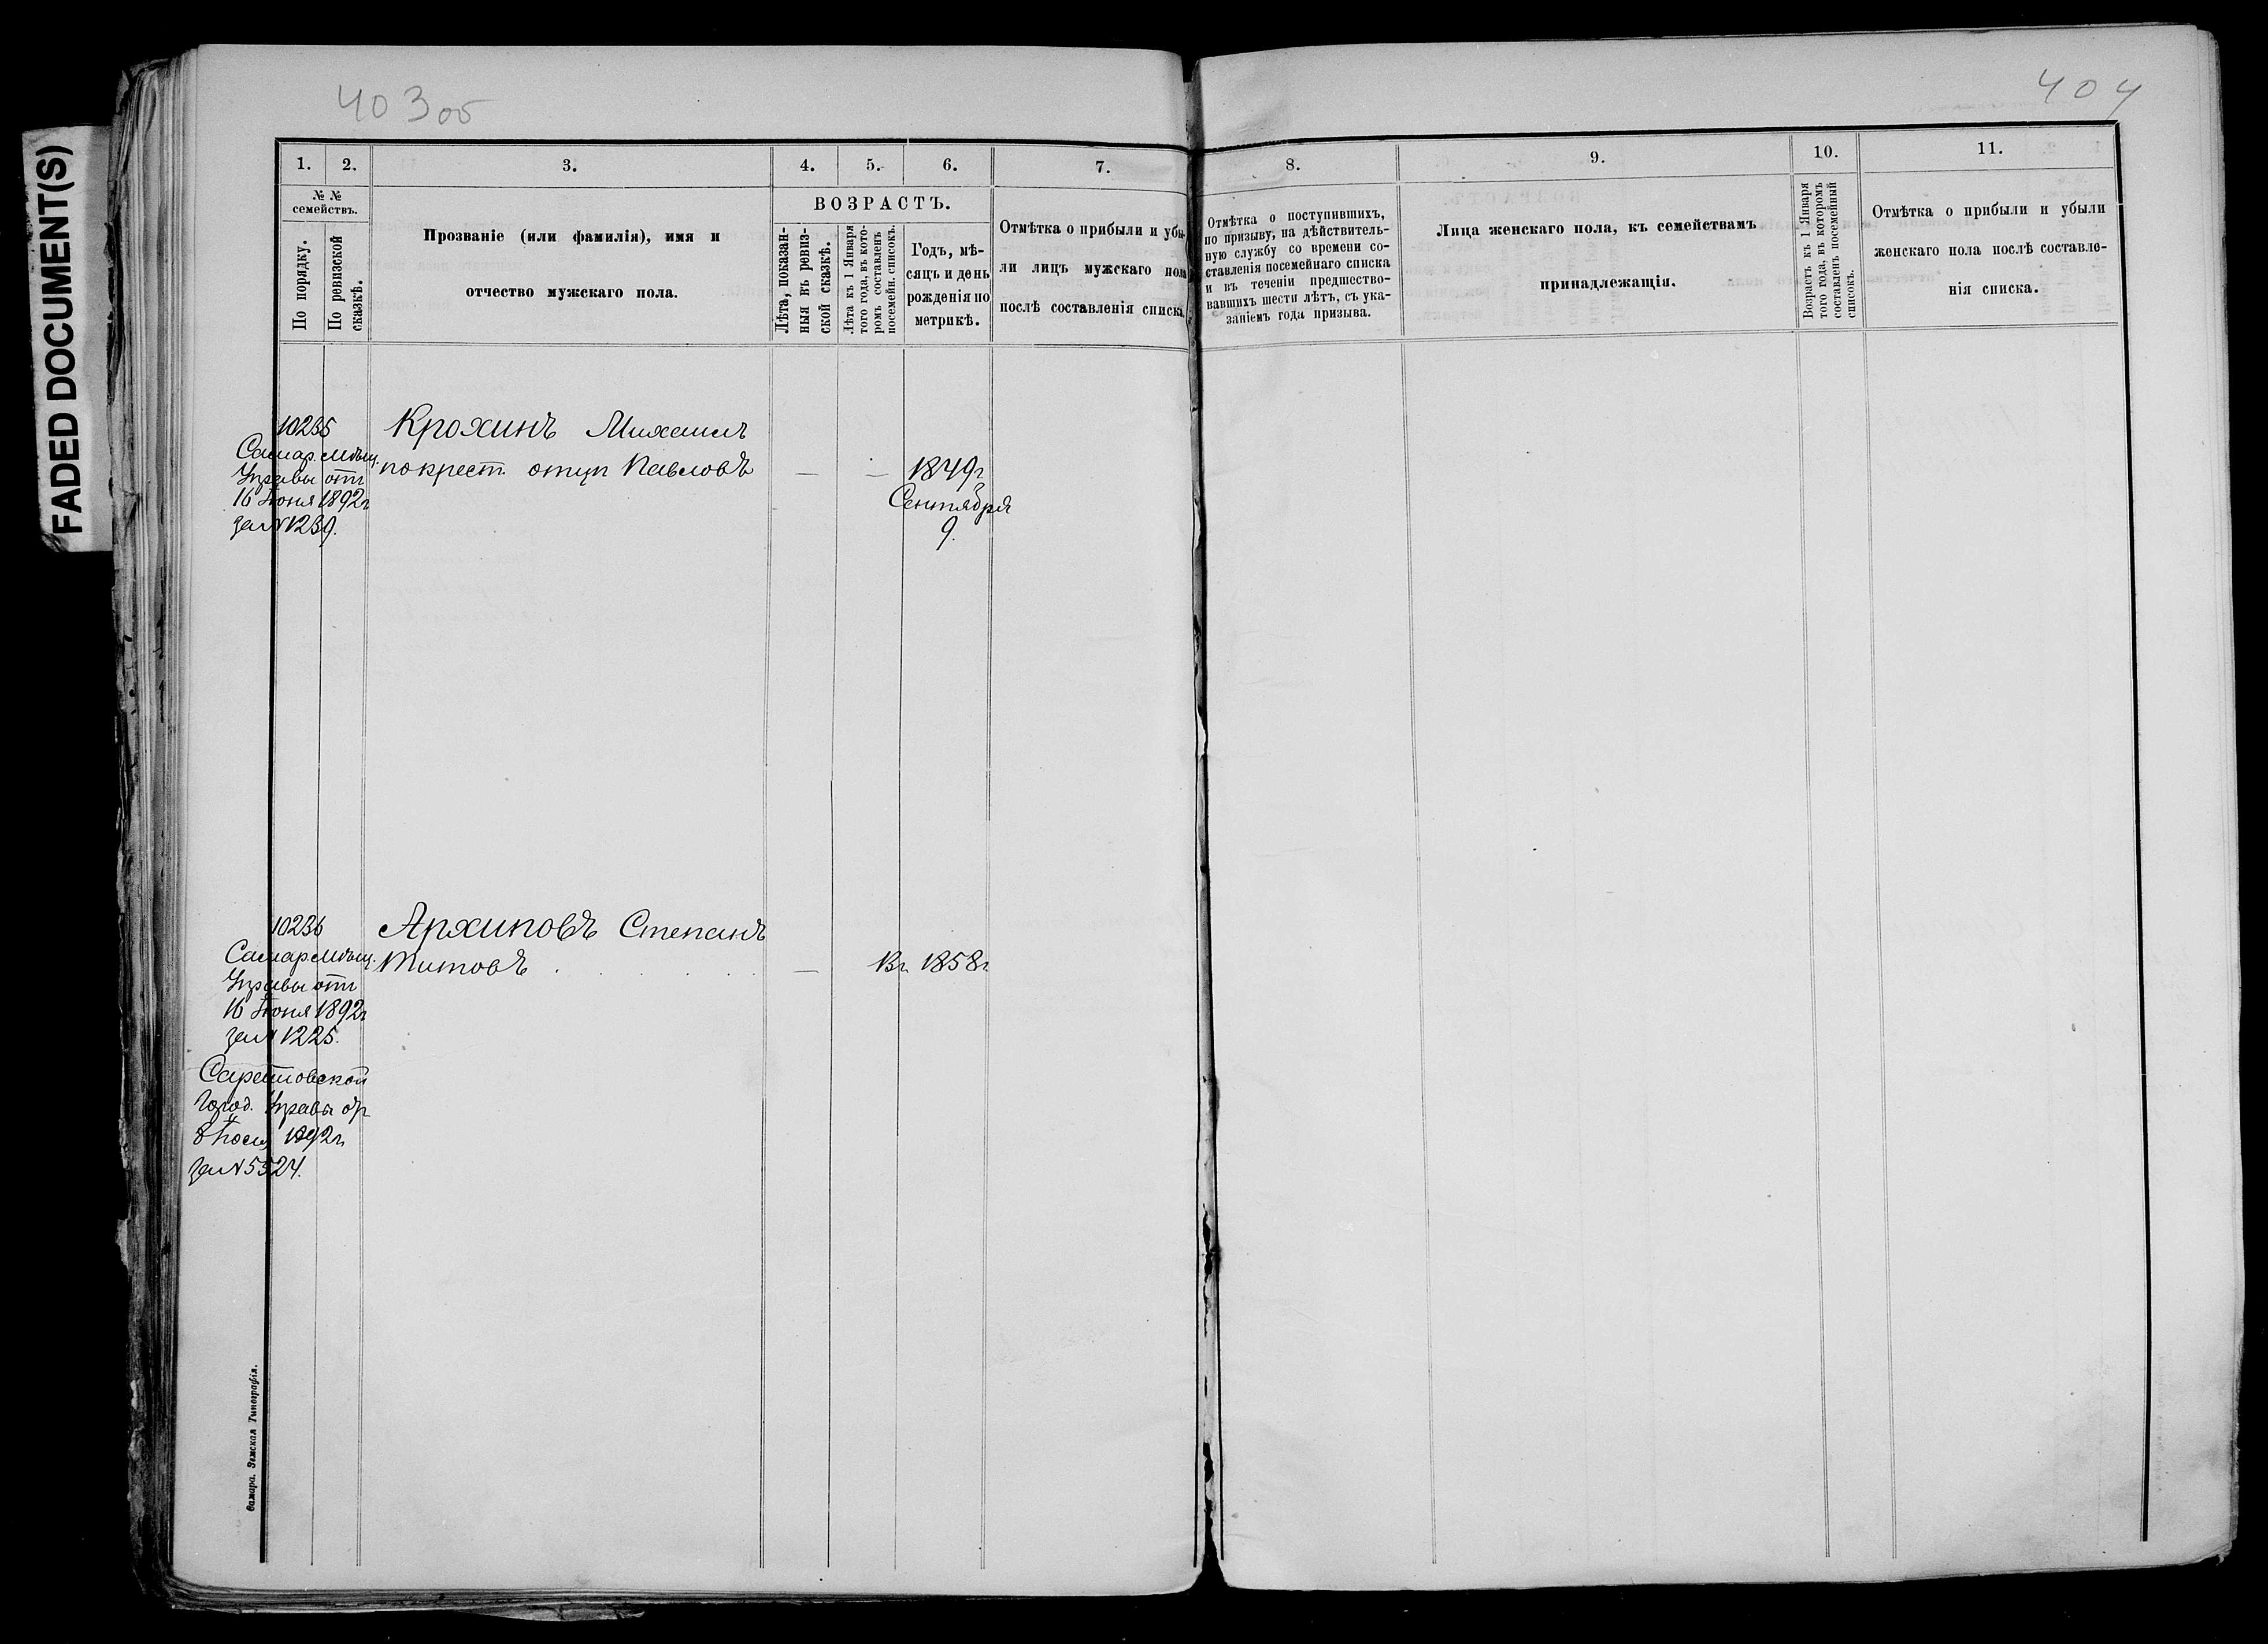 FADED DOCUMENT(S)
403об
404
1.
2.
3.
4.
5.
6.
7.
8.
9.
10.
11.
№ №
семействъ.
По порядку.
По ревизской
сказкѣ.
Прозваніе (или фамилія), имя и
отчество мужскаго пола.
ВОЗРАСТЪ.
Лѣта, показан-
ныя въ ревиз-
ской сказкѣ.
Лѣта къ 1 Января
того года, въ кото-
ромъ составленъ
посемейн. списокъ.
Годъ, мѣ-
сяцъ и день
рожденія по
метрикѣ.
Отмѣтка о прибыли и убы-
ли лицъ мужскаго пола
послѣ составленія списка.
Отмѣтка о поступившихъ,
по призыву, на дѣйствитель-
ную службу со времени со-
ставленія посемейнаго списка
и въ теченіи предшество-
вавшихъ шести лѣтъ, съ ука-
заніемъ года призыва.
Лица женскаго пола, къ семействамъ
принадлежащія.
Возрастъ къ 1 Января
того года, въ которомъ
составленъ посемейный
списокъ.
Отмѣтка о прибыли и убыли
женскаго пола послѣ составле-
нія списка.
10235
Самар. Мѣщ.
Управы от
16 Іюня 1892г
за № 1239.
Крохинъ Михаилъ
по крест. отцу Павловъ
—
—
1849г
Сентября
9.
10236
Самар. Мѣщ.
Управы от
16 Іюня 1892г
за № 1225.
Саратовской
Город. Управы от
8 1892г
за № 5524.
Архиповъ Степанъ
Титовъ . . . . .
—
Вг. 1858г
Самара. Земская Типографія.